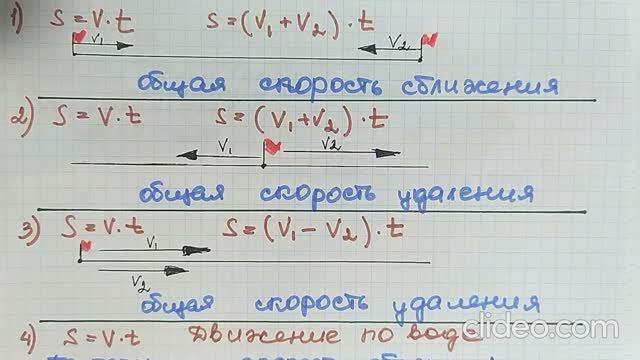 1) S = V · t S = (V₁ + V₂) · t
V₁ V₂
общая скорость сближения
2) S = V · t S = (V₁ + V₂) · t
V₁ V₂
общая скорость удаления
3) S = V · t S = (V₁ − V₂) · t
V₁
V₂
общая скорость удаления
4) S = V · t Движение по воде
clideo.com